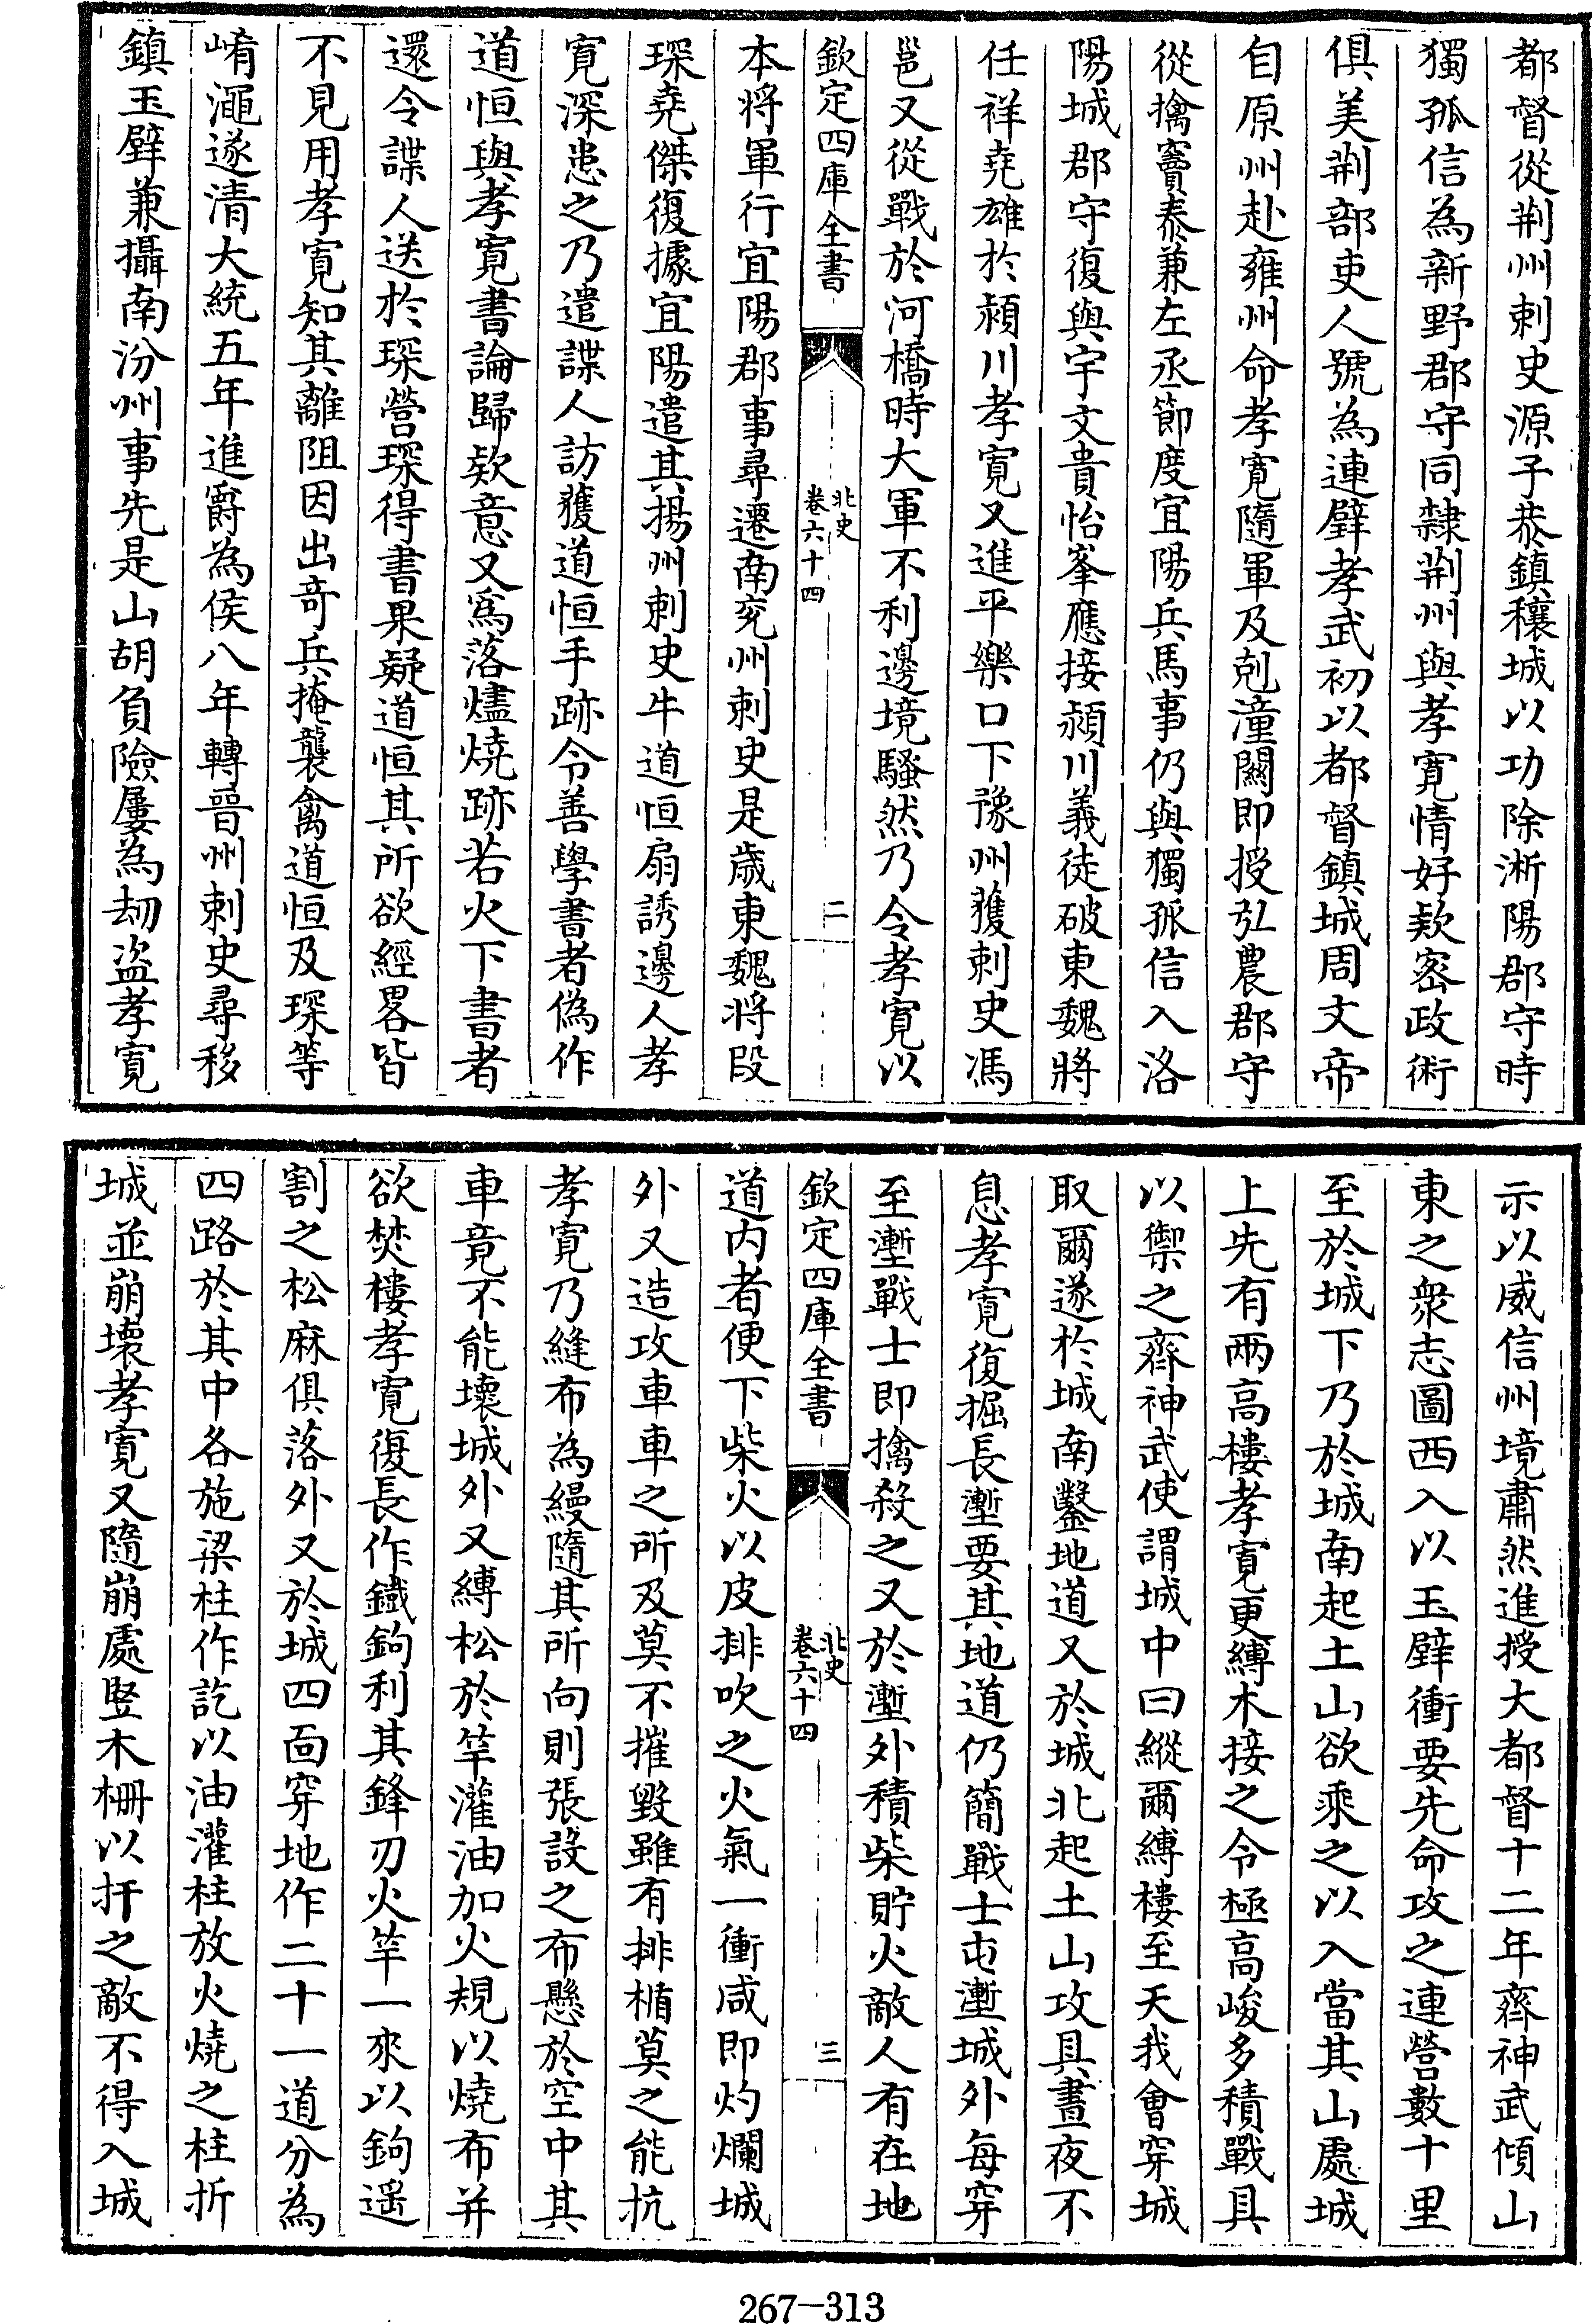 都督從荆州刺史源子恭鎮穰城以功除淅陽郡守時
獨孤信為新野郡守同隸荆州與孝寛情好欵密政術
俱美荆部吏人號為連璧孝武初以都督鎮城周文帝
自原州赴雍州命孝寛隨軍及剋潼關即授弘農郡守
從擒竇泰兼左丞節度宜陽兵馬事仍與獨孤信入洛
陽城郡守復與宇文貴怡峯應接潁川義徒破東魏將
任祥堯雄於潁川孝寛又進平樂口下豫州獲刺史馮
邕又從戰於河橋時大軍不利邊境騷然乃令孝寛以
欽定四庫全書
北史
卷六十四
二
本将軍行宜陽郡事尋遷南兖州刺史是歲東魏将段
琛堯傑復據宜陽遣其揚州刺史牛道恒扇誘邊人孝
寛深患之乃遣諜人訪獲道恒手跡令善學書者偽作
道恒與孝寛書論歸欵意又為落燼燒跡若火下書者
還令諜人送於琛營琛得書果疑道恒其所欲經畧皆
不見用孝寛知其離阻因出奇兵掩襲禽道恒及琛等
崤澠遂清大統五年進爵為侯八年轉晉州刺史尋移
鎮玉壁兼攝南汾州事先是山胡負險屢為刼盜孝寛
示以威信州境肅然進授大都督十二年齊神武傾山
東之衆志圖西入以玉壁衝要先命攻之連營數十里
至於城下乃於城南起土山欲乘之以入當其山處城
上先有兩高樓孝寛更縛木接之令極高峻多積戰具
以禦之齊神武使謂城中曰縱爾縛樓至天我會穿城
取爾遂於城南鑿地道又於城北起土山攻具晝夜不
息孝寛復掘長塹要其地道仍簡戰士屯塹城外每穿
至塹戰士即擒殺之又於塹外積柴貯火敵人有在地
欽定四庫全書
北史
卷六十四
三
道内者便下柴火以皮排吹之火氣一衝咸即灼爛城
外又造攻車車之所及莫不摧毀雖有排楯莫之能抗
孝寛乃縫布為縵隨其所向則張設之布懸於空中其
車竟不能壞城外又縛松於竿灌油加火規以燒布并
欲焚樓孝寛復長作鐵鉤利其鋒刃火竿一來以鉤遥
割之松麻俱落外又於城四面穿地作二十一道分為
四路於其中各施梁柱作訖以油灌柱放火燒之柱折
城並崩壞孝寛又隨崩處竪木柵以扞之敵不得入城
267-313